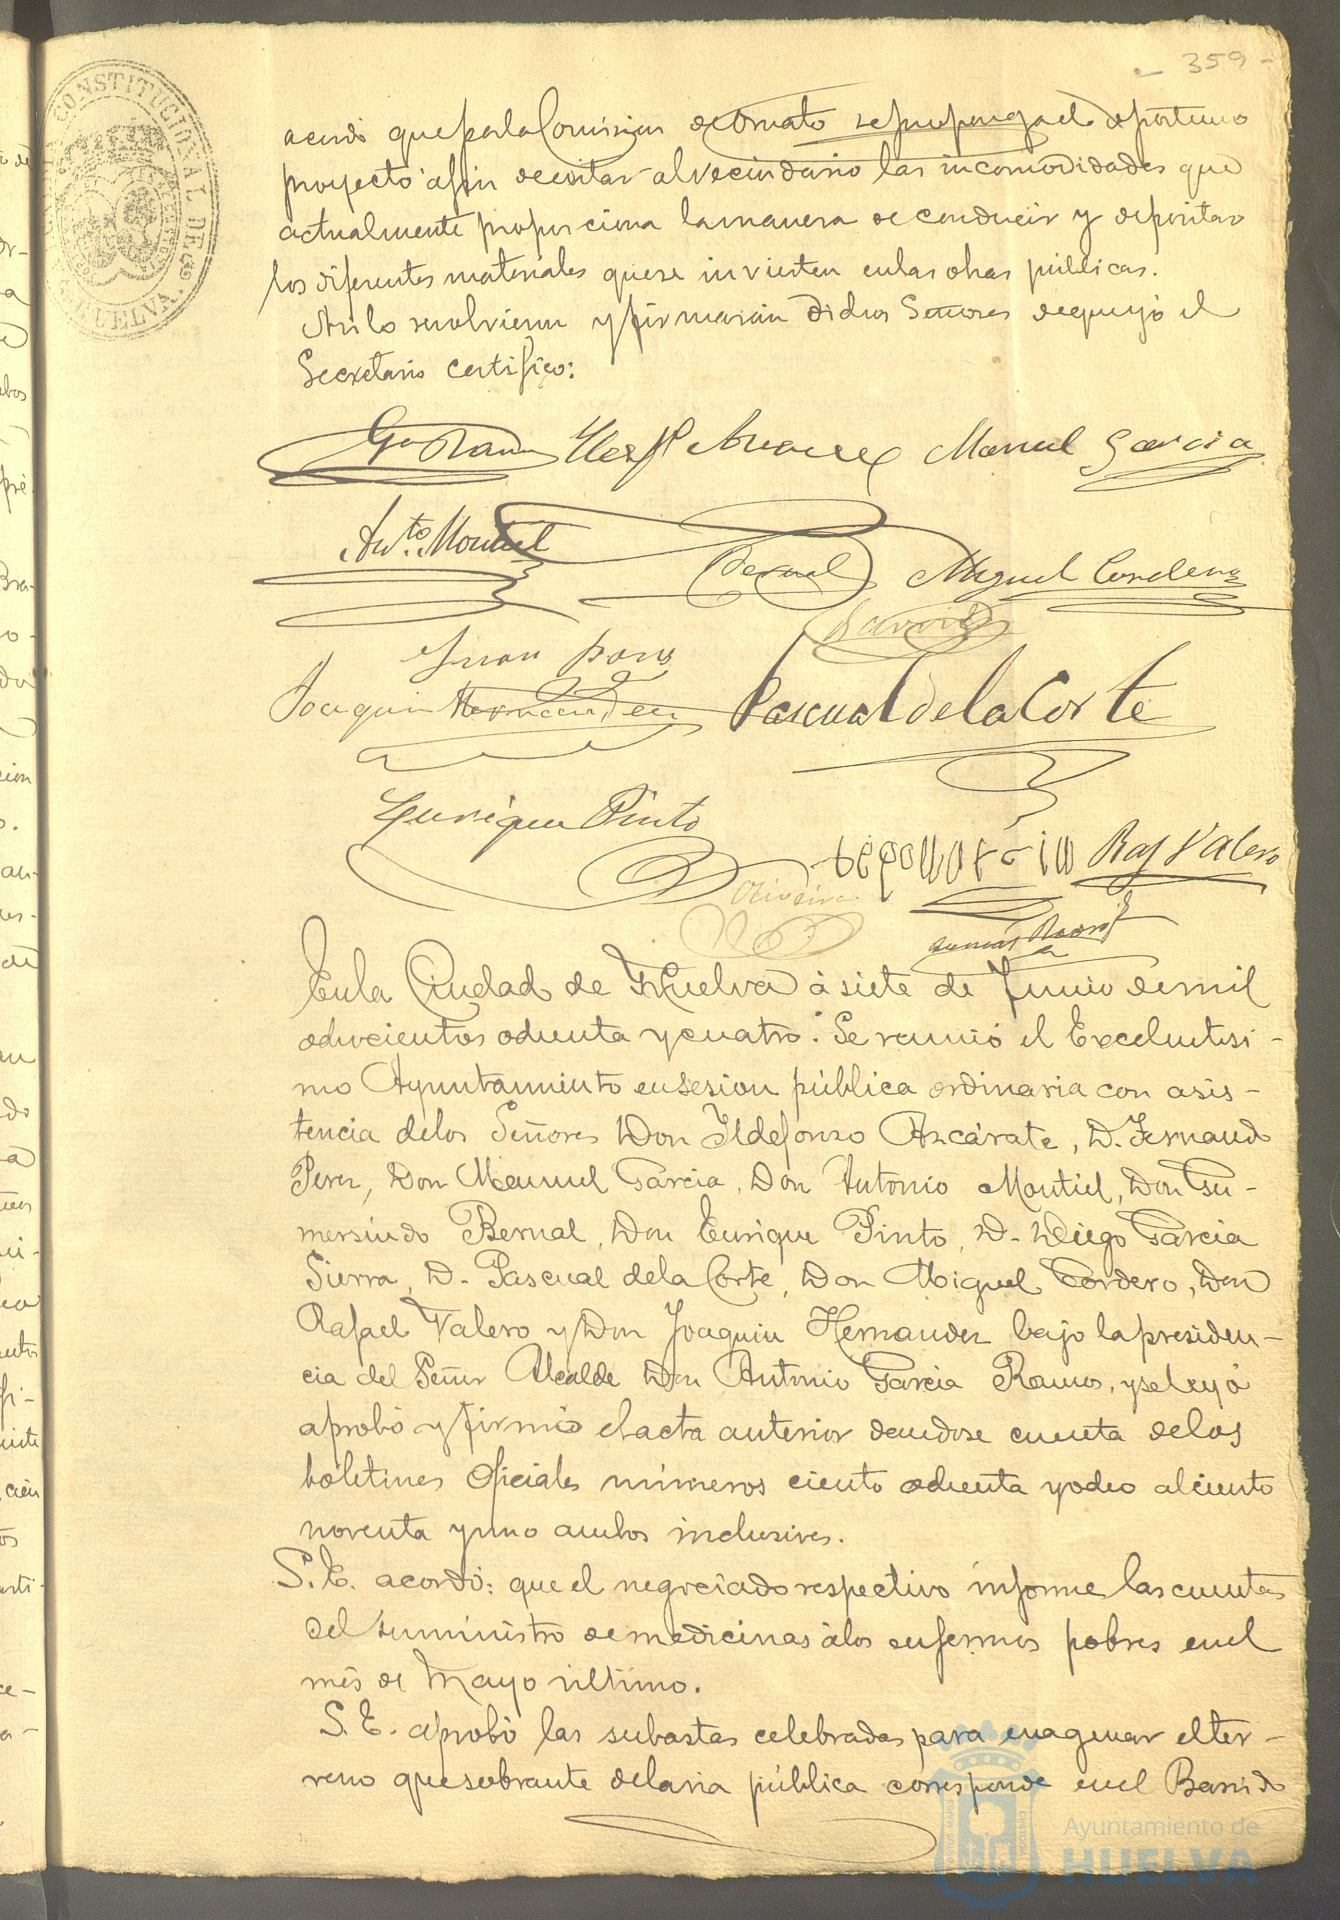 - 359 -
CONSTITUCIONAL DE
HUELVA.
acordó que por la Comision de Ornato se proponga el oportuno
proyecto á fin de evitar al vecindario las incomodidades que
actualmente proporciona la manera de conducir y depositar
los diferentes materiales que se invierten en las obras públicas.
Asi lo resolvieron y firmarán dichos Señores de que yó el
Secretario certifico:
Manuel Garcia
Ant.to Montiel
Bernal Miguel Cordero
Juan
Joaquin Hernandez Pascual de la Corte
Enrique Pinto
Raf Valero
Oliveira
En la Ciudad de Huelva á siete de Junio de mil
ochocientos ochenta y cuatro. Se reunió el Excelentisi-
mo Ayuntamiento en sesion pública ordinaria con asis-
tencia de los Señores Don Ildefonso Azcárate, D. Fernando
Perez, Don Manuel Garcia, Don Antonio Montiel, Don Gu-
mersindo Bernal, Don Enrique Pinto, D. Diego Garcia
Sierra, D. Pascual de la Corte, Don Miguel Cordero, Don
Rafael Valero y Don Joaquin Hernandez bajo la presiden-
cia del Señor Alcalde Don Antonio Garcia Ramos, y se leyó
aprobó y firmó el acta anterior dandose cuenta de los
boletines Oficiales números ciento ochenta y ocho al ciento
noventa y uno ambos inclusives.
S. E. acordó: que el negociado respectivo informe las cuentas
del suministro de medicinas á los enfermos pobres en el
més de Mayo último.
S. E. aprobó las subastas celebradas para enagenar el ter-
reno que sobrante de la via pública corresponde en el Barrio
Ayuntamiento de
HUELVA